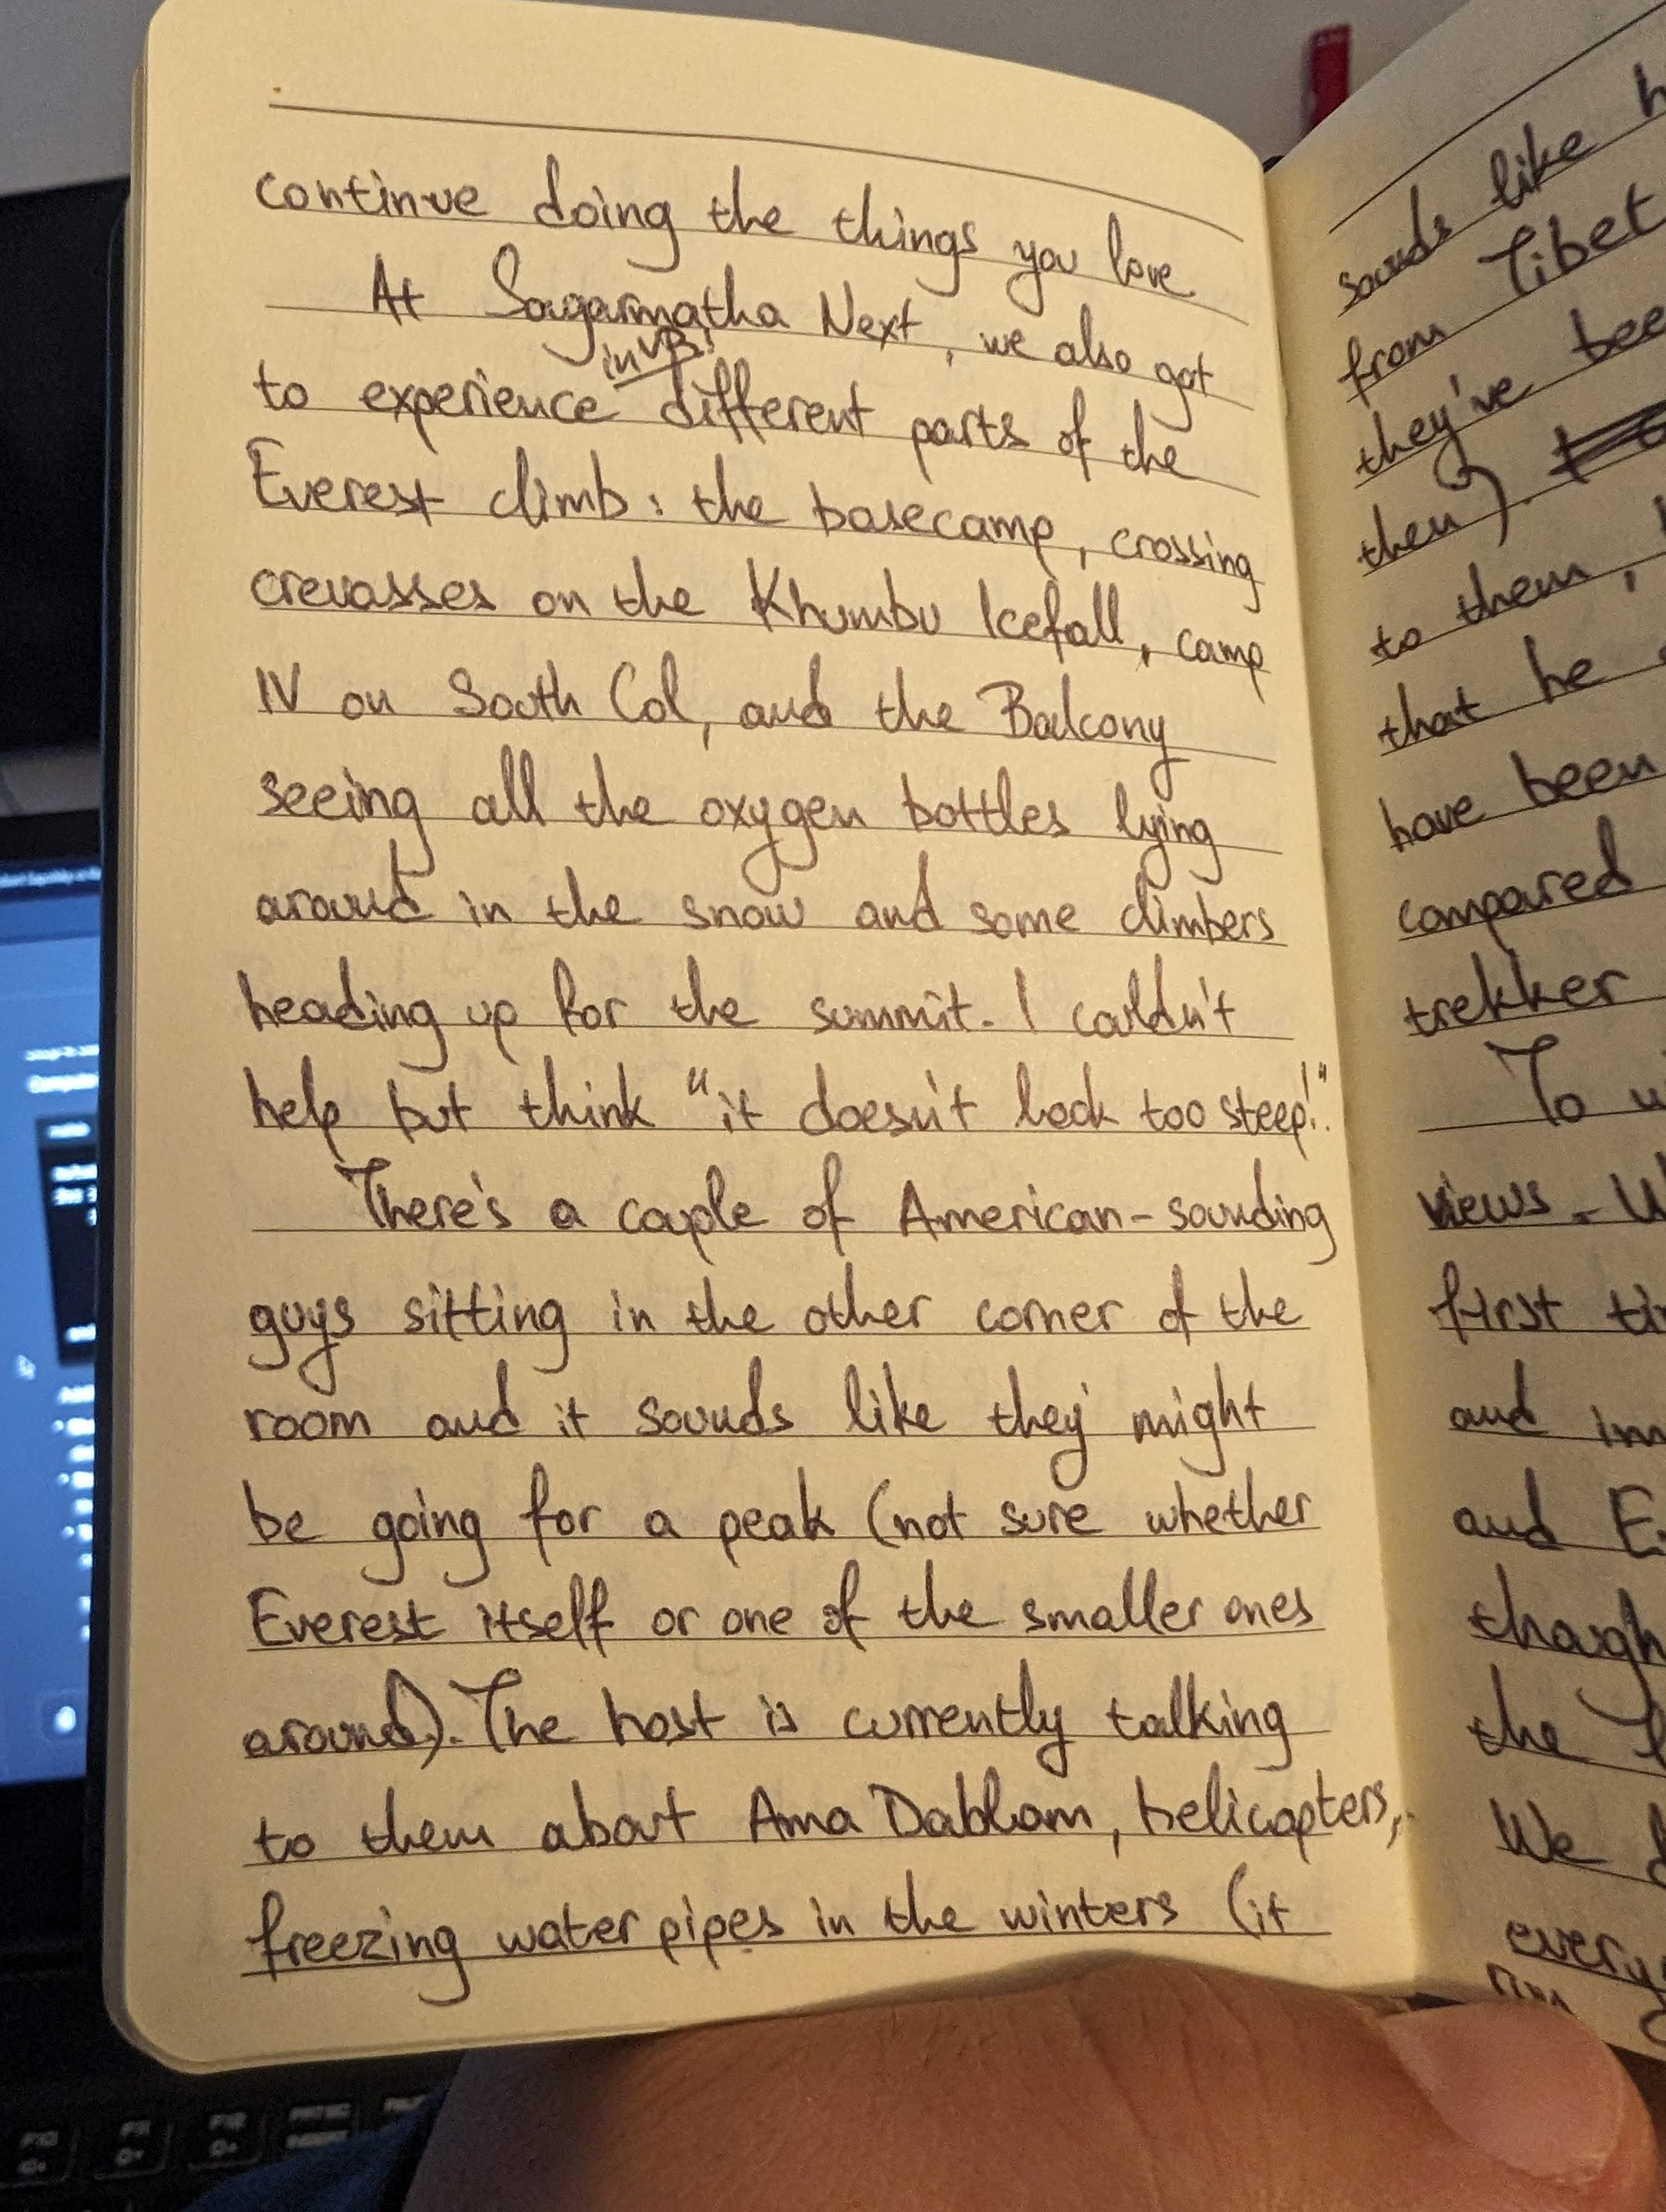 continue doing the things you love
At Sagarmatha Next, we also got
in VR!
to experience different parts of the
Everest climb: the basecamp, crossing
crevasses on the Khumbu Icefall, camp
IV on South Col, and the Balcony
seeing all the oxygen bottles lying
around in the snow and some climbers
heading up for the summit. I couldn't
help but think "it doesn't look too steep!".
There's a couple of American-sounding
guys sitting in the other corner of the
room and it sounds like they might
be going for a peak (not sure whether
Everest itself or one of the smaller ones
around). The host is currently talking
to them about Ama Dablam, helicopters,
freezing water pipes in the winters (it
sounds like
Tibet
from
they've
then).
to them,
that he
have been
compared
trekker
To
views.
first
and
and
the
We